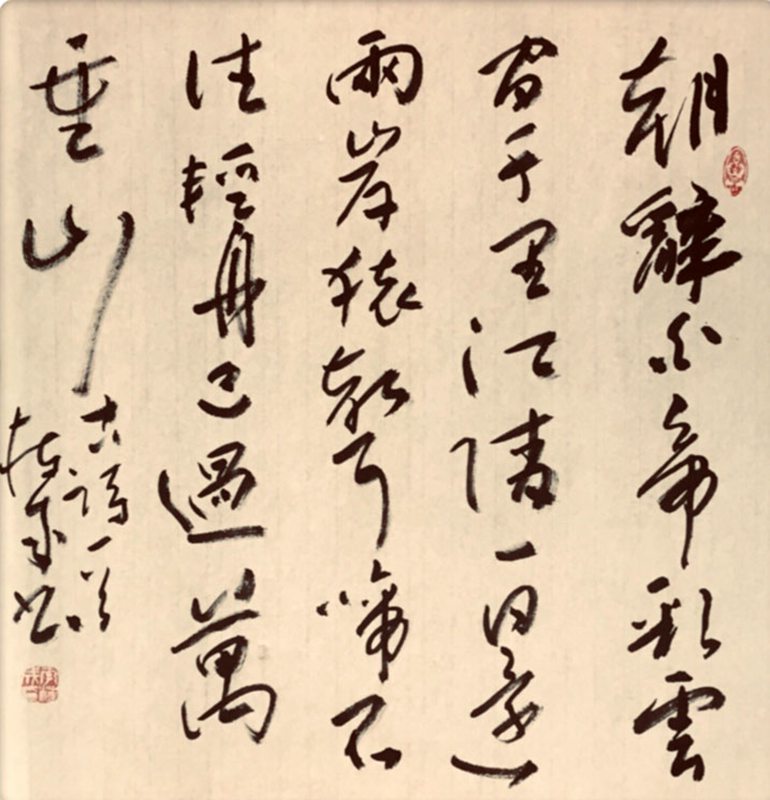 朝辭白帝彩雲
間千里江陵一日還
兩岸猿聲啼不
住輕舟已過萬
重山
古詩一首
书